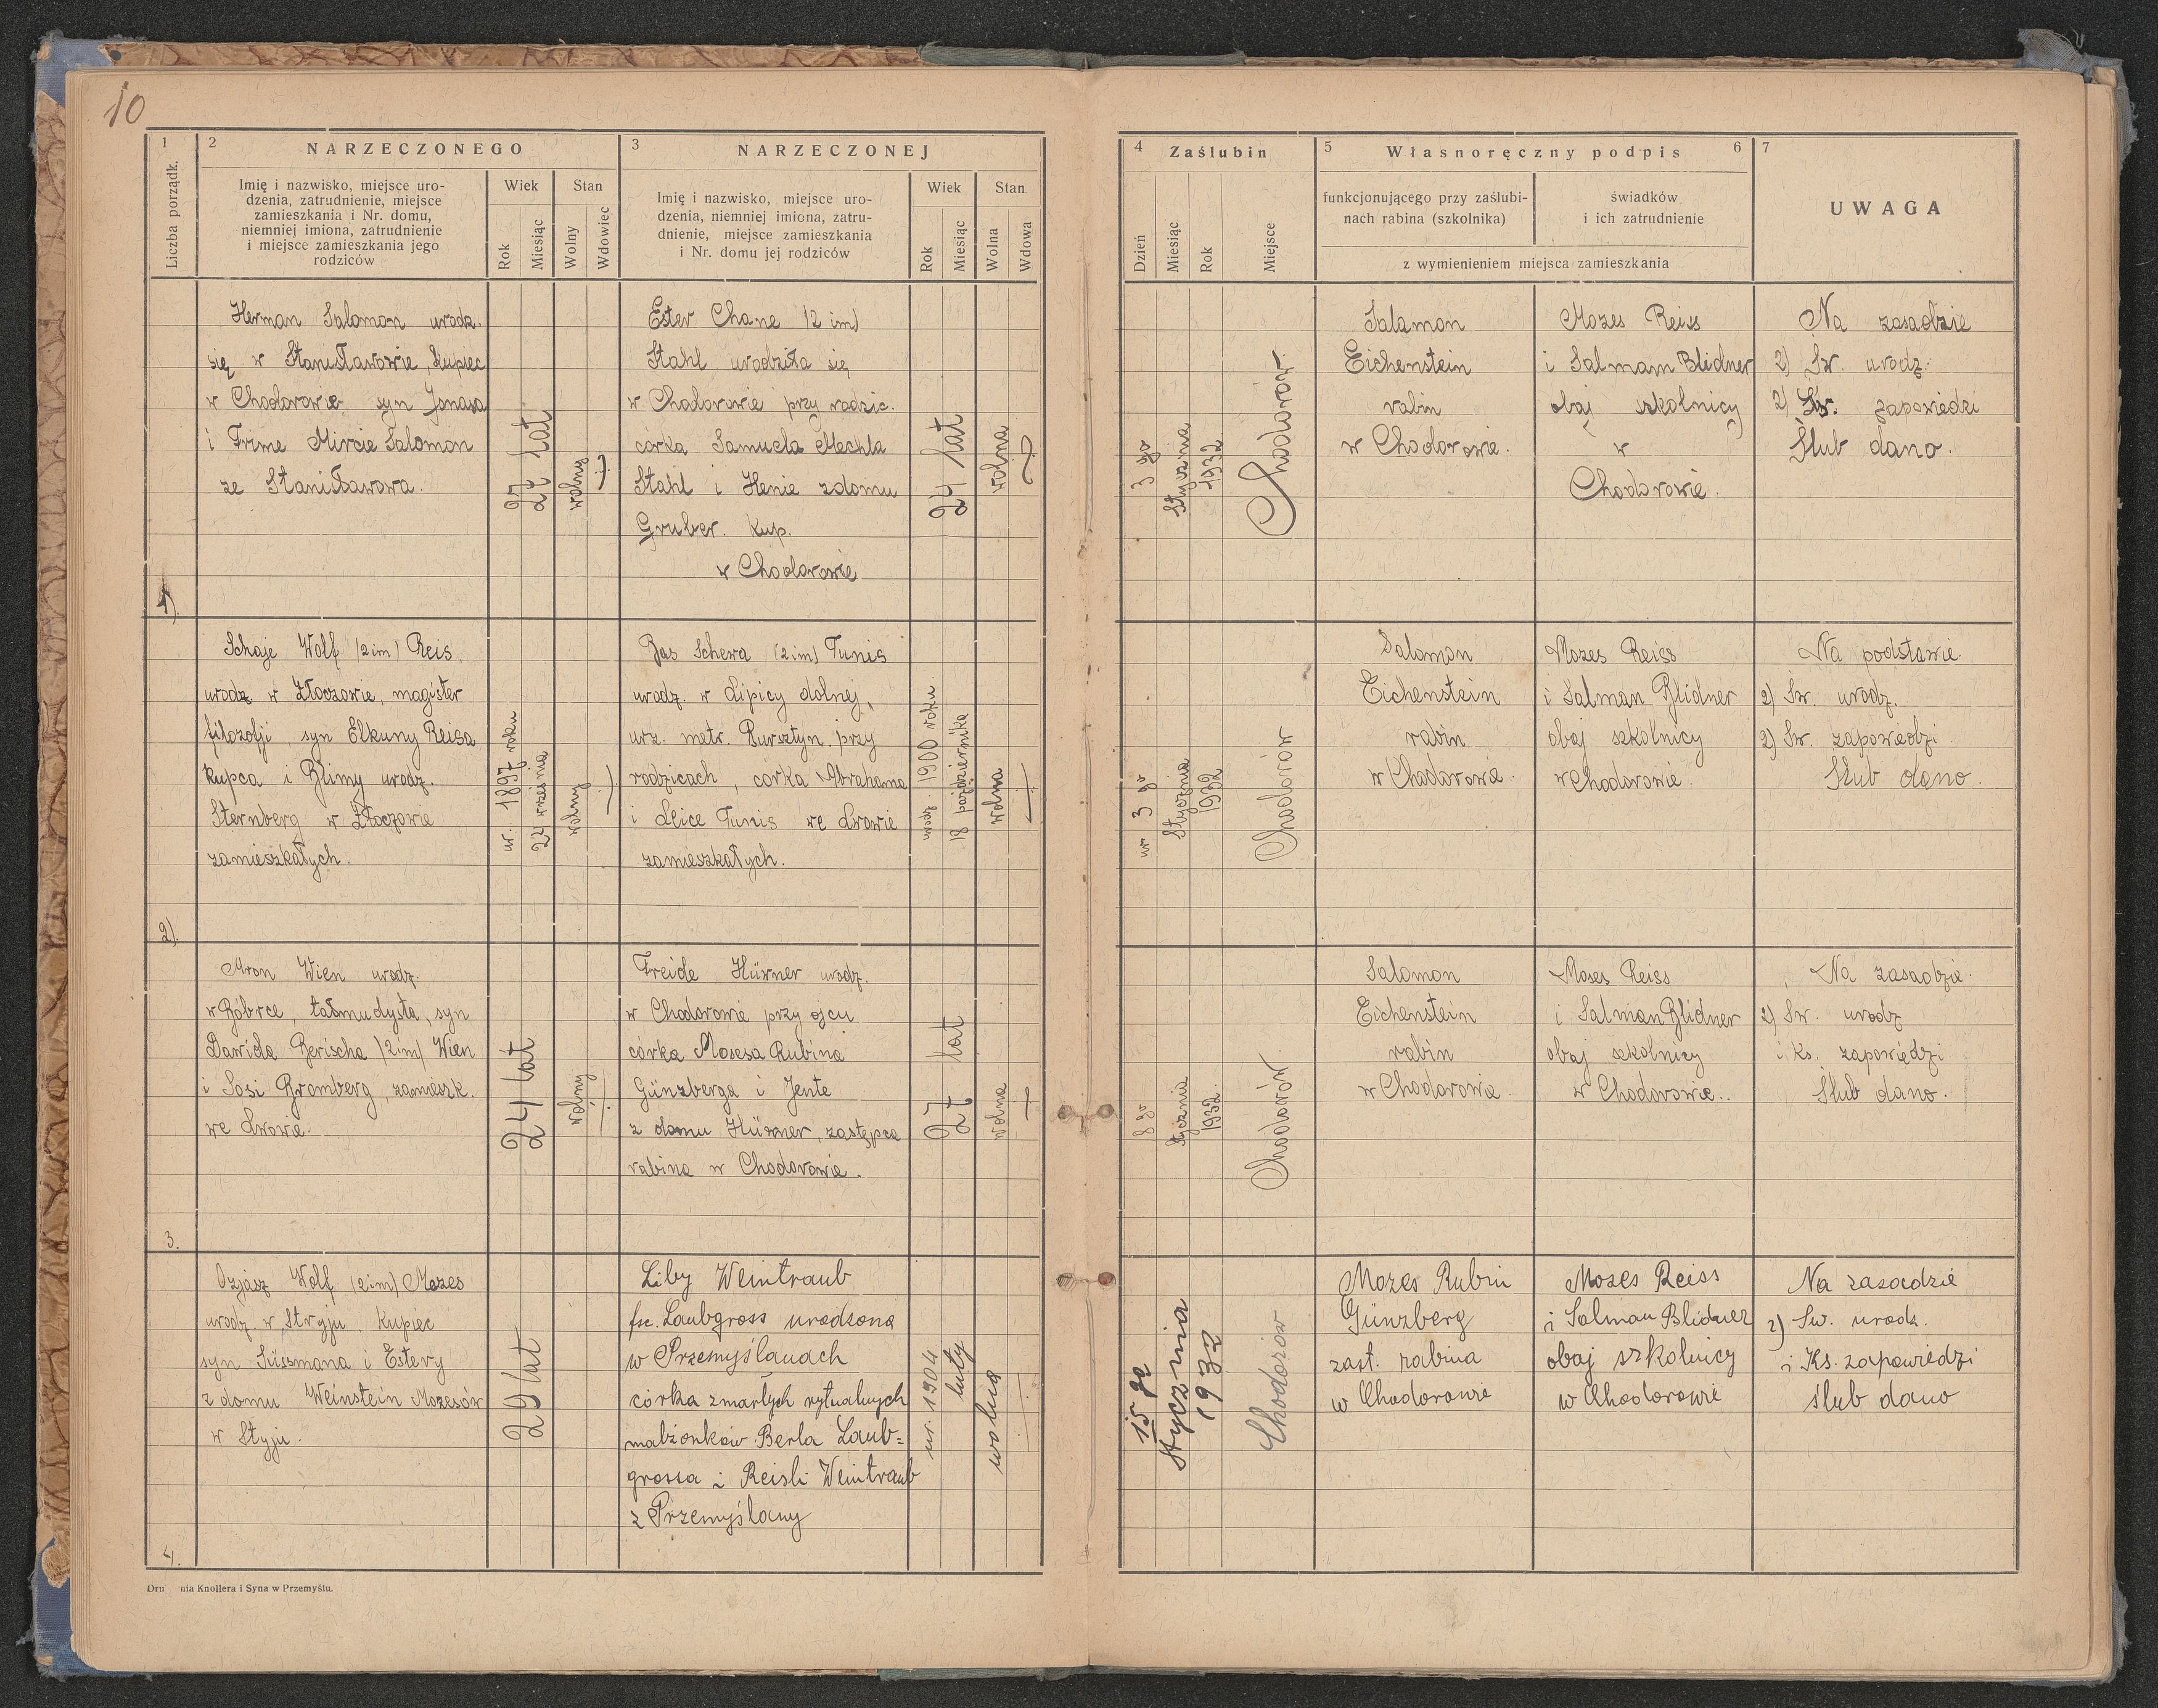 10
1
Liczba porządk.
2
NARZECZONEGO
Imię i nazwisko, miejsce uro-
dzenia, zatrudnienie, miejsce
zamieszkania i Nr. domu,
niemniej imiona, zatrudnienie
i miejsce zamieszkania jego
rodziców
Wiek
Rok
Miesiąc
Stan
Wolny
Wdowiec
3
NARZECZONEJ
Imię i nazwisko, miejsce uro-
dzenia, niemniej imiona, zatru-
dnienie, miejsce zamieszkania
i Nr. domu jej rodziców
Wiek
Rok
Miesiąc
Stan
Wolna
Wdowa
4
Zaślubin
Dzień
Miesiąc
Rok
Miejsce
5
Własnoręczny podpis
6
funkcjonującego przy zaślubi-
nach rabina (szkolnika)
świadków
i ich zatrudnienie
z wymienieniem miejsca zamieszkania
7
UWAGA
1).
Herman Salomon urodz.
się w Stanisławowie, kupiec
w Chodorowie syn Jonasa
i Frime Mircie Salomon
ze Stanisławowa.
27 lat
wolny
Ester Chane (2 im)
Stahl urodziła się
w Chodorowie przy rodzic.
córka Samuela Mechla
Stahl i Henie zdomu
Gruber. kup.
w Chodorowie
24 lat
wolna
3 go
Stycznia
1932
Chodorów
Salamon
Eichenstein
rabin
w Chodorowie.
Mozes Reiss
i Salmam Blidner
obaj szkolnicy
w
Chodorowie.
Na zasadzie
2) Św. urodz.
2) Św. zapowiedzi
Ślub dano.
2).
Schaje Wolf (2 im) Reis.
urodz w Złoczowie, magister
filozofji, syn Elkuny Reisa
kupca i Blimy urodz.
Sternberg w Złoczowie
zamieszkałych.
ur. 1897 roku
24 września
wolny
Bas Schewa (2 im) Tunis
urodz. w Lipicy dolnej,
urz. metr. Bursztyn. przy
rodzicach, córka Abrahama
i Leice Tunis we Lwowie
zamieszkałych.
urodz. 1900 roku.
18 października
wolna
3 go
Stycznia
1932
Chodorów
Salomon
Eichenstein
rabin
w Chodorowie.
Mozes Reiss
i Salman Blidner
obaj szkolnicy
w Chodorowie.
Na podstawie
2) Św. urodz.
2) Św. zapowiedzi
Ślub dano.
3.
Aron Wien urodz.
w Bóbrce, talmudysta, syn
Dawida Berischa (2 im) Wien
i Sosi Bromberg, zamieszk.
we Lwowie.
24 lat
wolny
Freide Hürner urodz.
w Chodorowie przy ojcu
córka Mosesa Rubina
Günzberga i Jente
z domu Hürner, zastępca
rabina w Chodorowie.
27 lat
wolna
8 go
stycznia
1932.
Chodorów.
Salomon
Eichenstein
rabin
w Chodorowie.
Moses Reiss
i Salman Blidner
obaj szkolnicy
w Chodorowie.
Na zasadzie.
2) Św. urodz
i Ks. zapowiedzi
Ślub dano.
4.
Ozjasz Wolf (2 im) Mozes
urodz. w Stryju, kupiec
syn Süssmana i Estery
z domu Weinstein Mozesów
w Styju.
29 lat
Liby Weintraub
fsc. Laubgross urodzona
w Przemyślanach
córka zmarłych rytualnych
małżonków Berla Laub=
grossa i Reisli Weintraub
z Przemyślany
ur. 1904
luty
wolna
15 go
Stycznia
1932
Chodorów
Mozes Rubin
Günzberg
zast. rabina
w Chodorowie
Moses Reiss
i Salman Blidner
obaj szkolnicy
w Chodorowie
Na zasadzie
2) Św. urodz.
i Ks. zapowiedzi
ślub dano
Dru nia Knollera i Syna w Przemyślu.